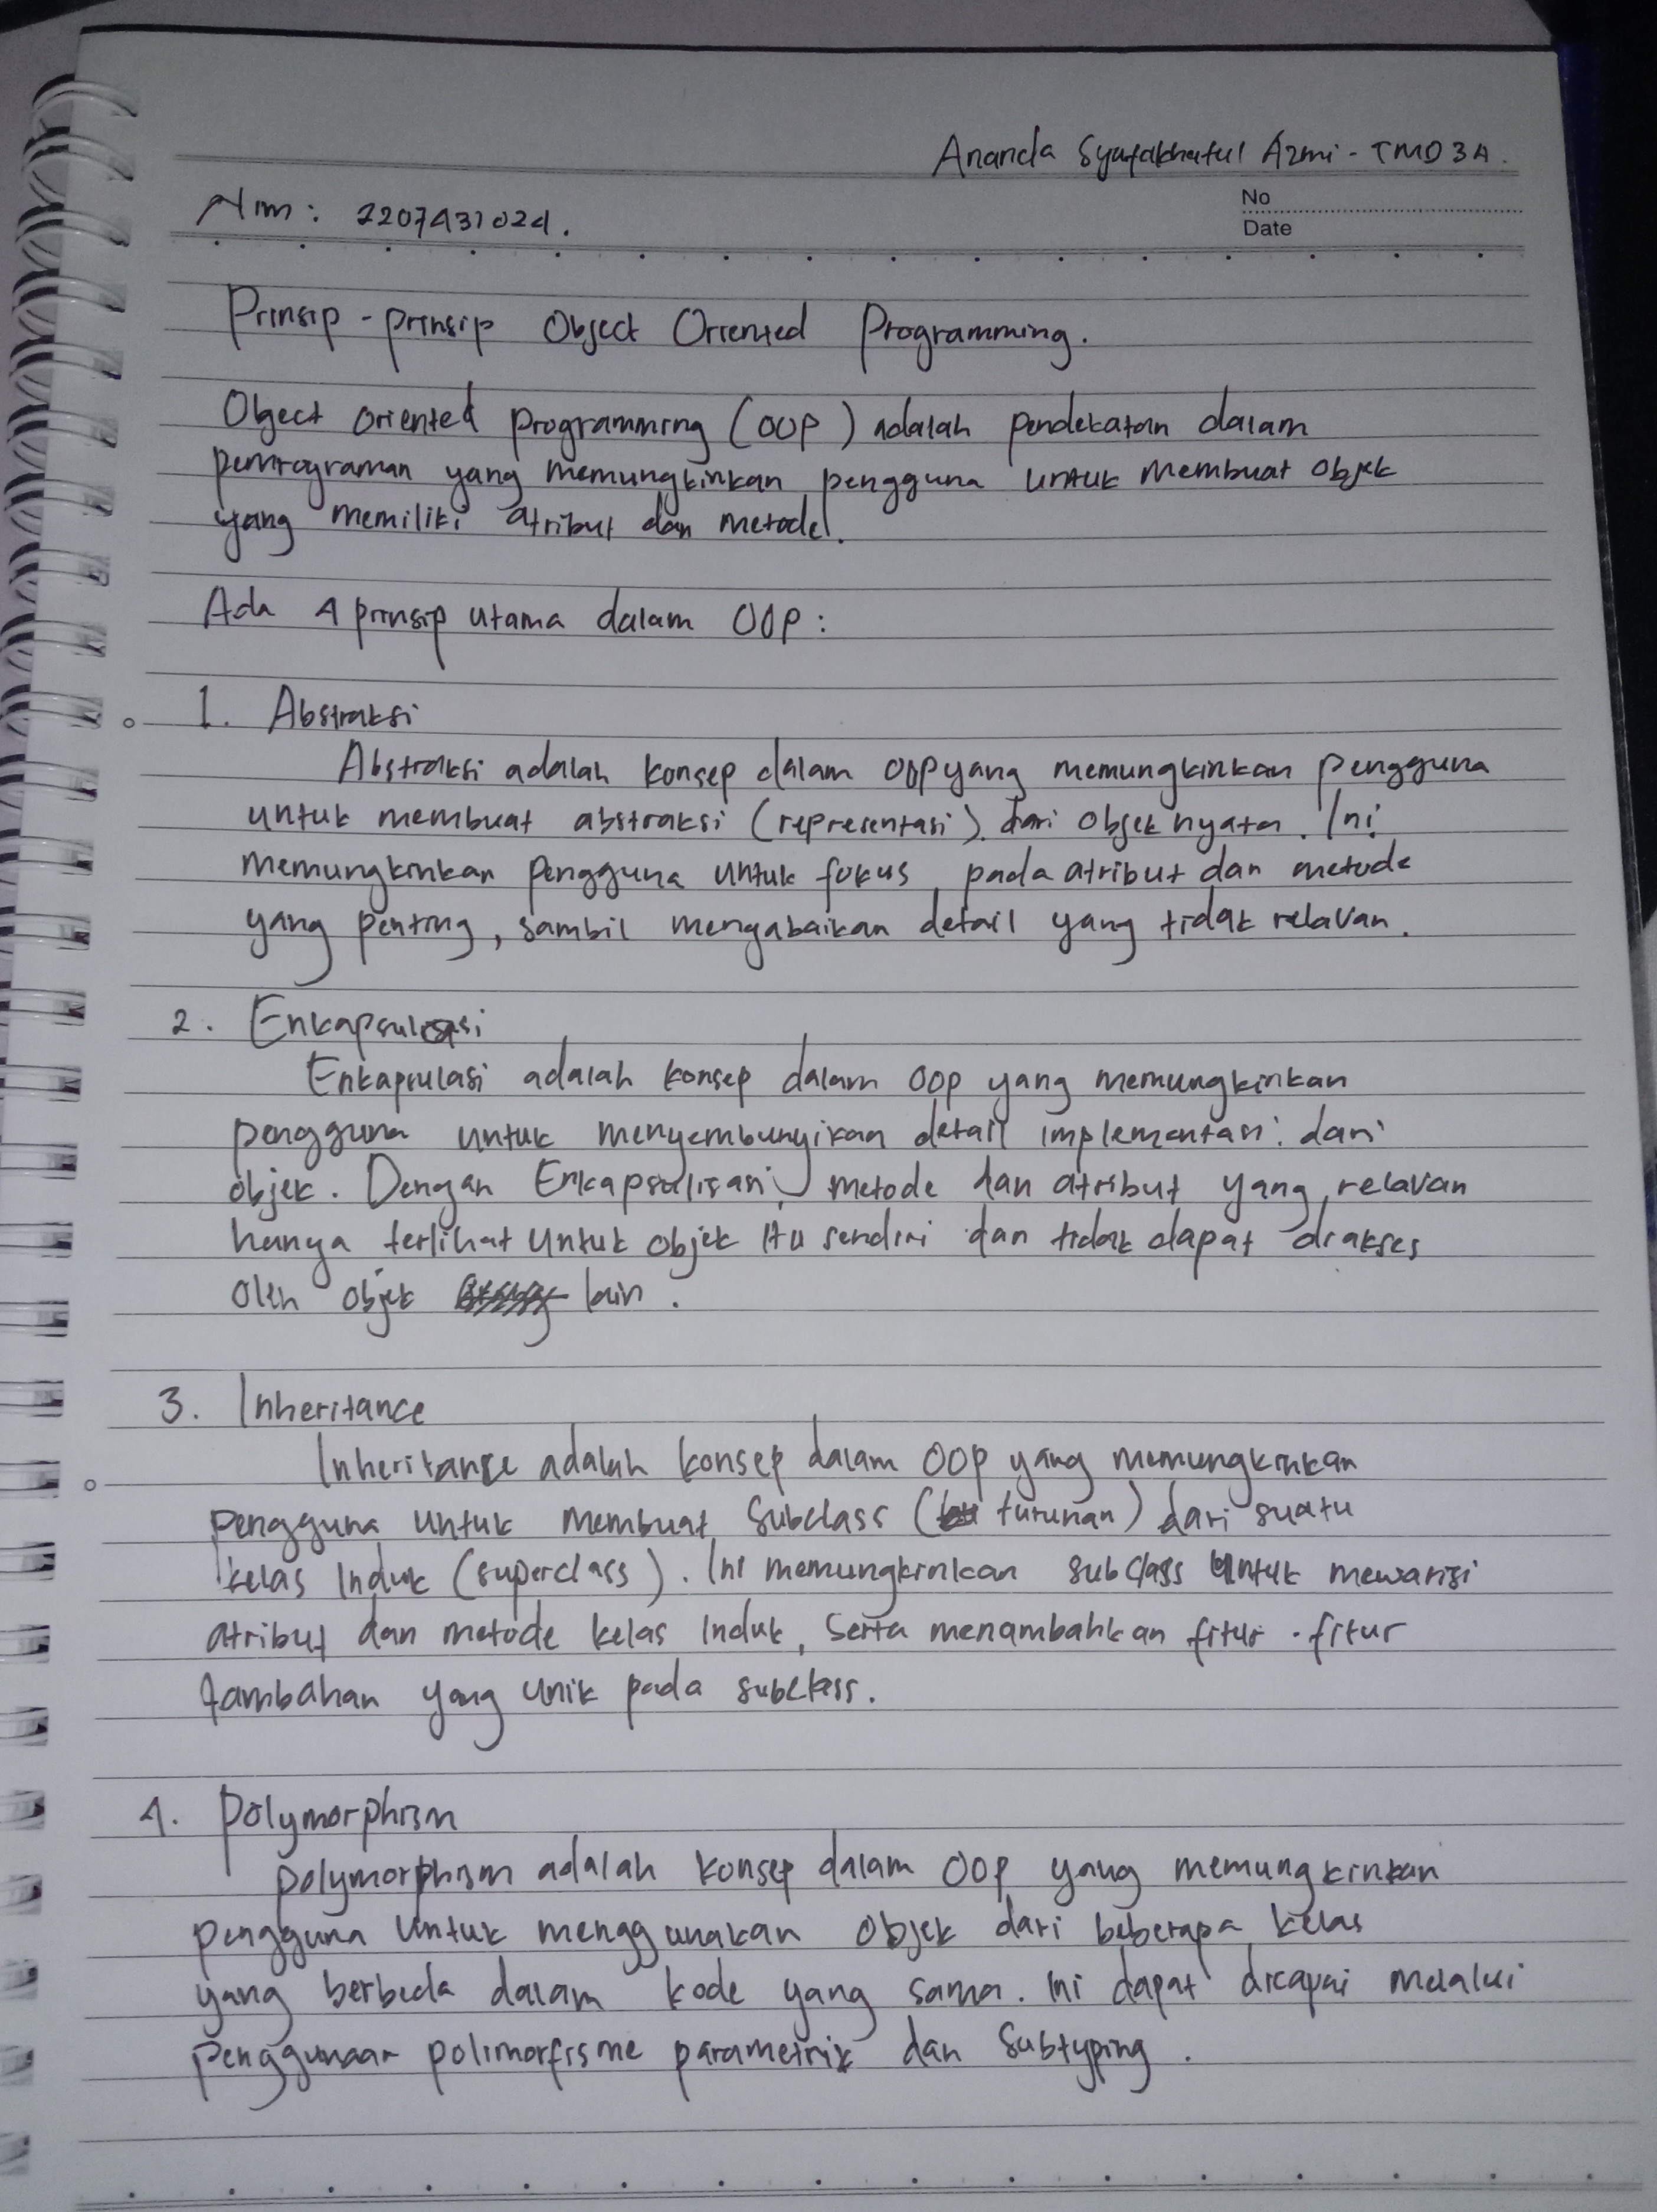 Ananda Syafakhatul Azmi - TMD 3A.
Nim : 2207431024.
No
Date
Prinsip - prinsip Object Oriented Programming.
Object Oriented programming (OOP) adalah pendekatan dalam
pemrograman yang memungkinkan pengguna untuk membuat objek
yang memiliki atribut dan metode.
Ada 4 prinsip utama dalam OOP :
1. Abstraksi
Abstraksi adalah konsep dalam OOP yang memungkinkan pengguna
untuk membuat abstraksi (representasi) dari objek nyata. Ini
memungkinkan pengguna untuk fokus pada atribut dan metode
yang penting, sambil mengabaikan detail yang tidak relavan.
2. Enkapsulasi
Enkapsulasi adalah konsep dalam OOP yang memungkinkan
pengguna untuk menyembunyikan detail implementasi dari
objek. Dengan Enkapsulisasi, metode dan atribut yang relavan
hanya terlihat untuk objek itu sendiri dan tidak dapat diakses
oleh objek lain.
3. Inheritance
Inheritance adalah konsep dalam OOP yang memungkinkan
pengguna untuk membuat subclass (turunan) dari suatu
kelas Induk (superclass). Ini memungkinkan subclass untuk mewarisi
atribut dan metode kelas Induk, serta menambahkan fitur-fitur
tambahan yang unik pada subclass.
4. Polymorphism
polymorphism adalah konsep dalam OOP yang memungkinkan
pengguna untuk menggunakan objek dari beberapa kelas
yang berbeda dalam kode yang sama. Ini dapat dicapai melalui
penggunaan polimorfisme parametrik dan subtyping.